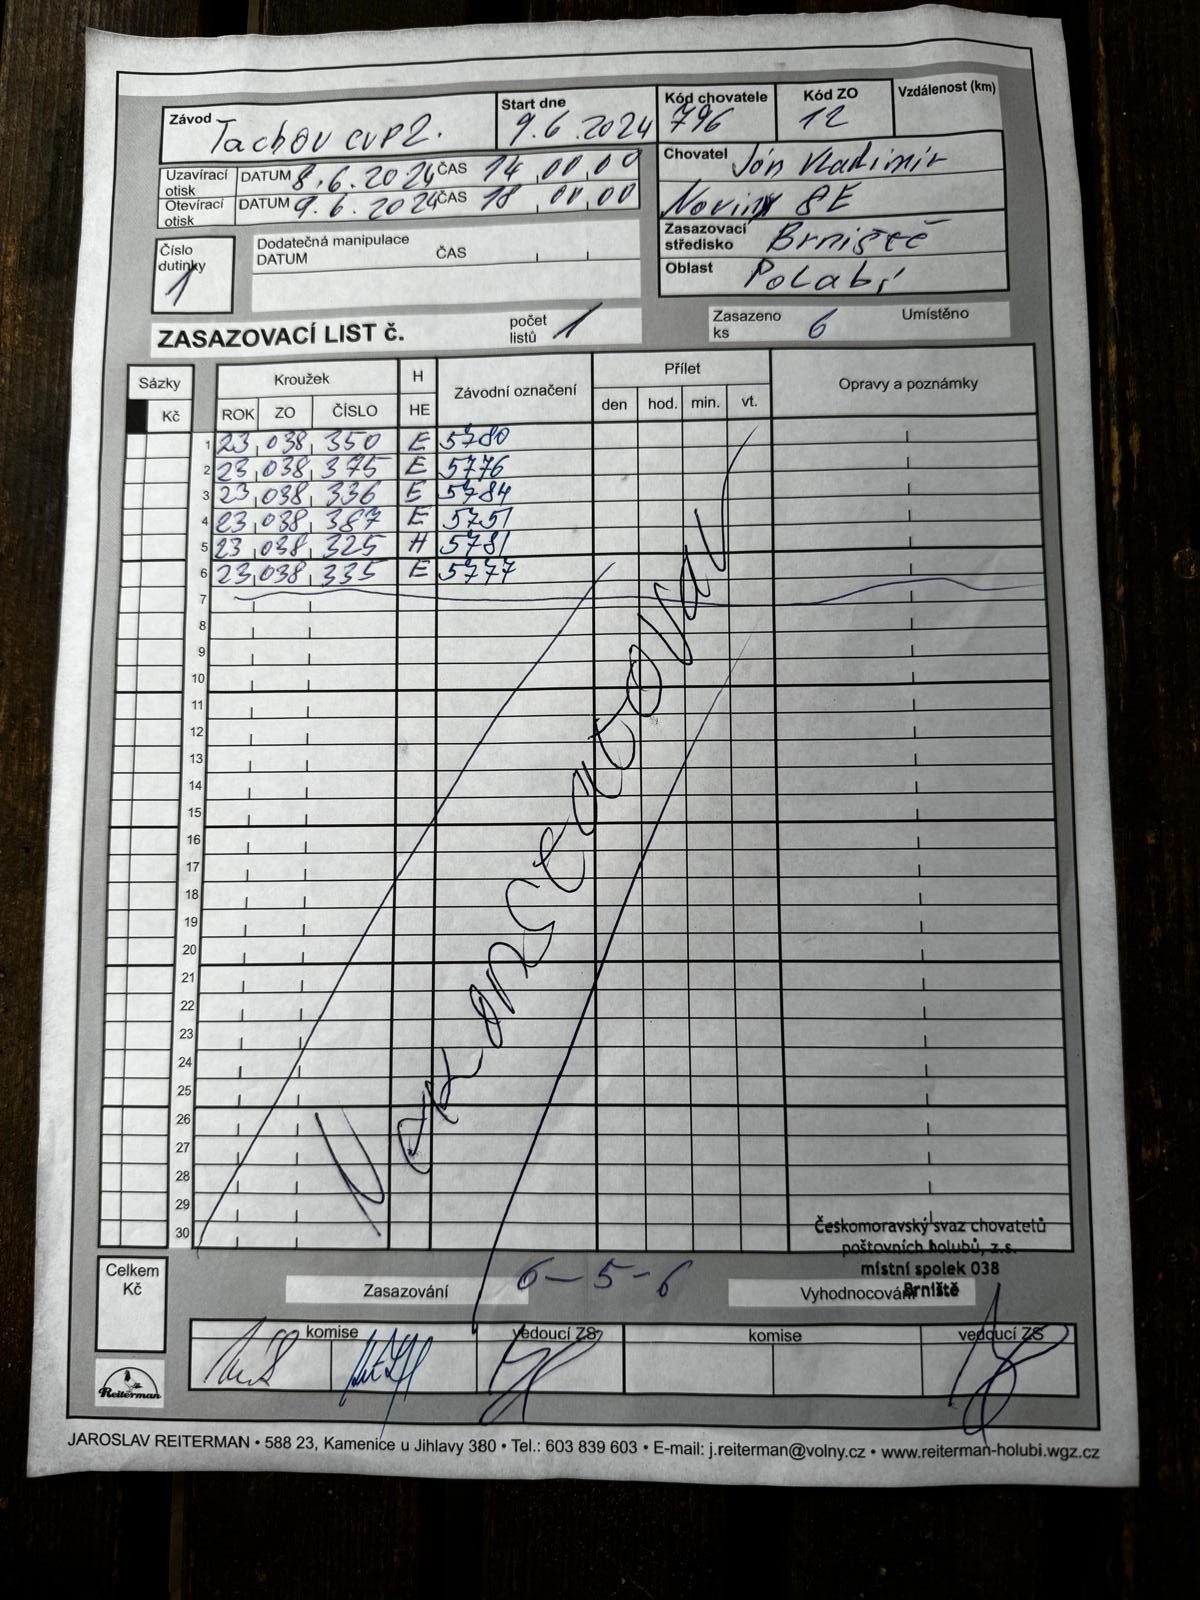 Závod Tachov CVP2.
Start dne 9.6.2024
Kód chovatele 796
Kód ZO 12
Vzdálenost (km)
Uzavírací otisk DATUM 8.6.2024 ČAS 14 00 00
Otevírací otisk DATUM 9.6.2024 ČAS 18 00 00
Chovatel Jón Vladimír
Noviny 8E
Zasazovací středisko Brniště
Oblast Polabí
Číslo dutinky 1
Dodatečná manipulace
DATUM ČAS
ZASAZOVACÍ LIST č. počet listů 1
Zasazeno ks 6 Umístěno
Sázky Kroužek H Závodní označení Přílet Opravy a poznámky
Kč ROK ZO ČÍSLO HE den hod. min. vt.
1 23 038 350 E 5780
2 23 038 375 E 5776
3 23 038 336 E 5784
4 23 038 387 E 5751
5 23 038 325 H 5781
6 23 038 335 E 5777
7
8
9
10
11
12
13
14
15
16
17
18
19
20
21
22
23
24
25
26
27
28
29
30
Nekonstatoval
Českomoravský svaz chovatelů
poštovních holubů, z.s.
místní spolek 038
Brniště
Celkem Kč
Zasazování 6-5-6 Vyhodnocování
komise vedoucí ZS komise vedoucí ZS
Reiterman
JAROSLAV REITERMAN • 588 23, Kamenice u Jihlavy 380 • Tel.: 603 839 603 • E-mail: j.reiterman@volny.cz • www.reiterman-holubi.wgz.cz